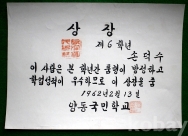 상장
제6학년
손덕수
이 사람은 본 학년간 품행이 방정하고
학업성적이 우수하므로 이 상장을 줌
1962년 2월 13일
암동국민학교
kobay